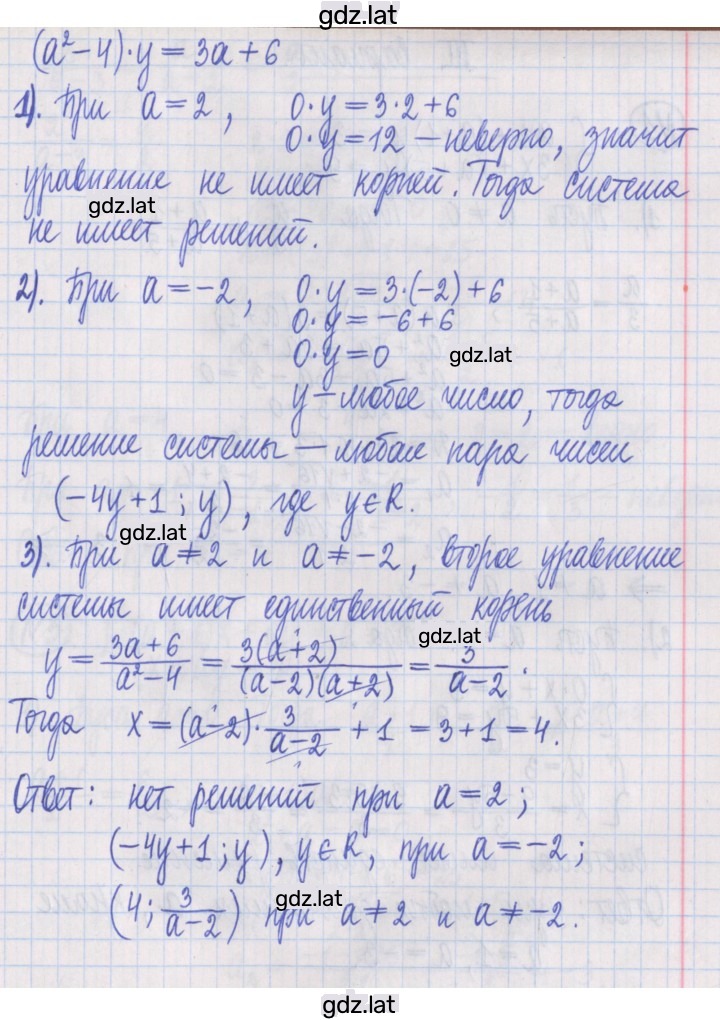 gdz.lat
(a²−4)·y = 3a+6
1). При a=2, 0·y=3·2+6
0·y=12 – неверно, значит
уравнение не имеет корней. Тогда система
gdz.lat
не имеет решений.
2). При a=−2, 0·y=3·(−2)+6
0·y=−6+6
0·y=0
gdz.lat
y – любое число, тогда
решение системы – любая пара чисел
(−4y+1; y), где y∈R.
gdz.lat
3). При a≠2 и a≠−2, второе уравнение
системы имеет единственный корень
gdz.lat
y = (3a+6)/(a²−4) = 3(a+2)/((a−2)(a+2)) = 3/(a−2).
Тогда x = (a−2)·3/(a−2) + 1 = 3+1 = 4.
Ответ: нет решений при a=2;
(−4y+1; y), y∈R, при a=−2;
gdz.lat
(4; 3/(a−2)) при a≠2 и a≠−2.
gdz.lat